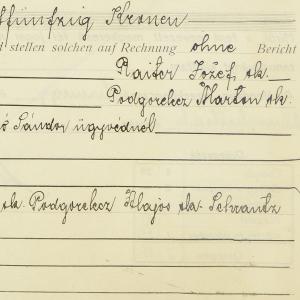 ffünfzig Kronen
d stellen solchen auf Rechnung ohne Bericht
Raiter József sk.
Podgorelcz Márton sk.
ó Sándor ügyvédnél
sk. Podgorelcz Klajos sk. Schrantz